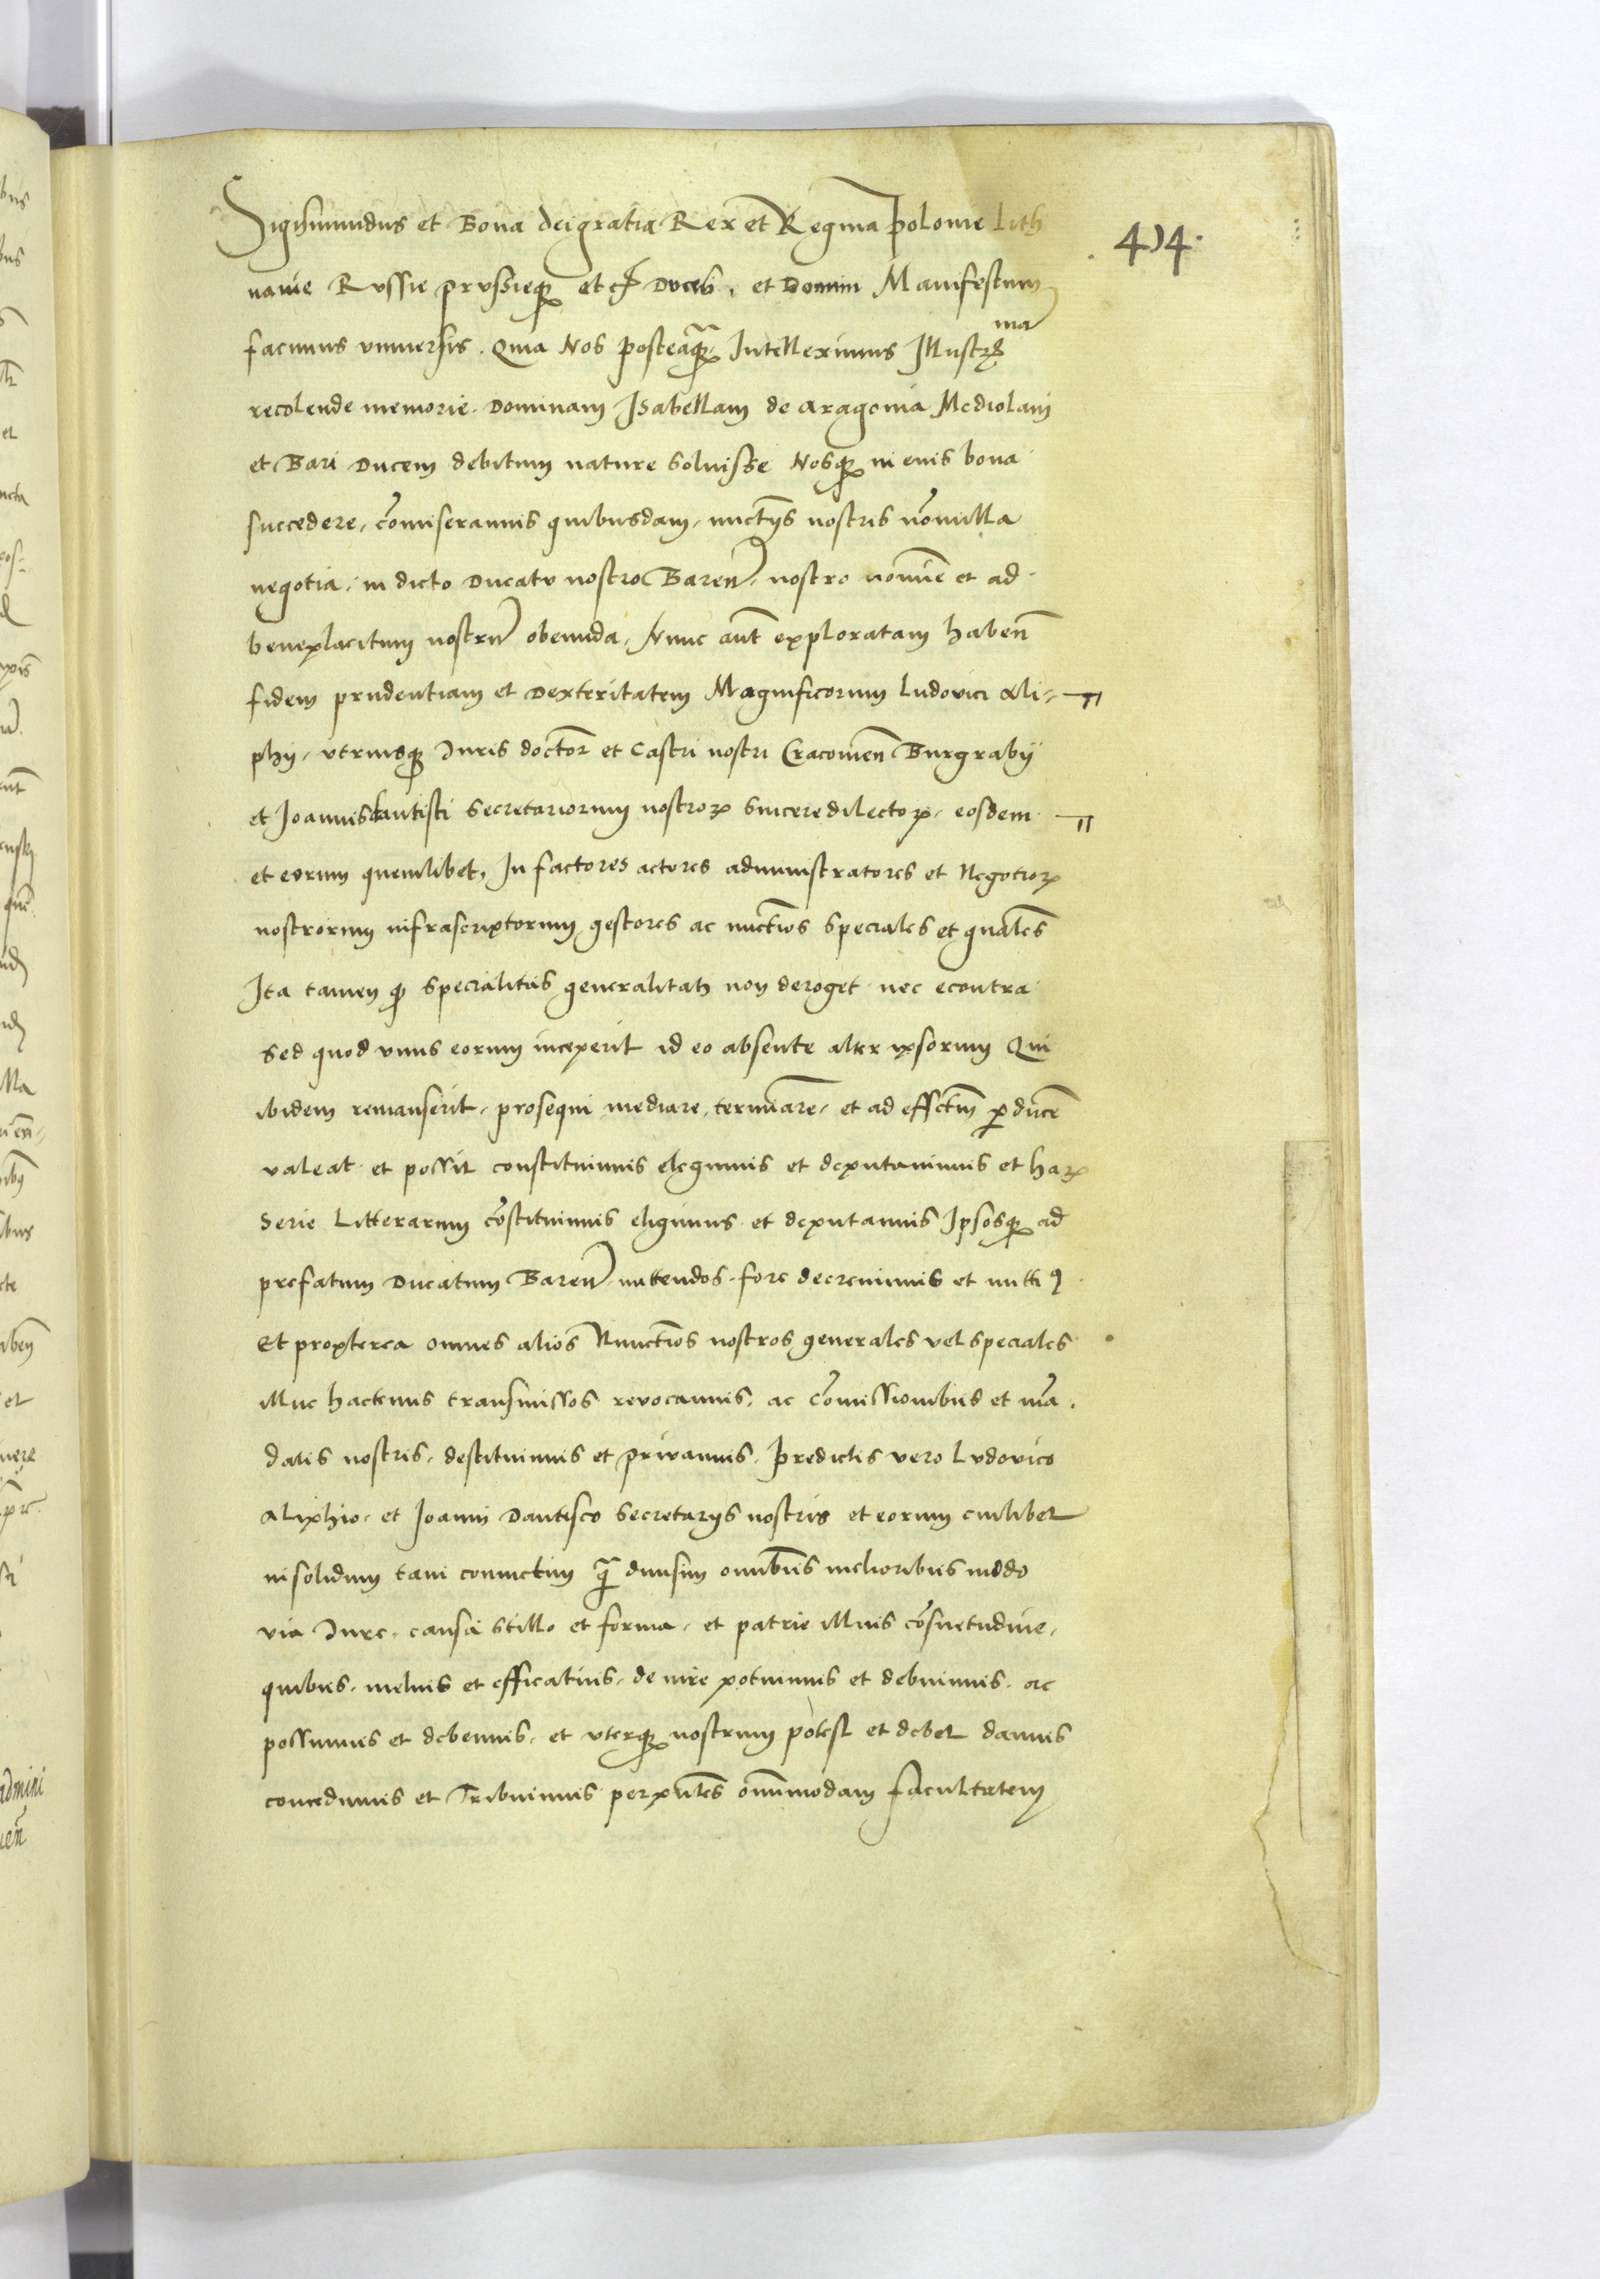 Sigismundus et Bona deigratia Rex et Regina Polonie Lith
414.
nanie Russie prussieq3 etc Duces. et Domini Manifestum
facimus vniuersis. Quia Nos posteaq3 Intelleximus Illustrem
ma
recolende memorie. Dominam Isabellam de aragonia Mediolani
et Bari Ducem debitum nature soluisse Nosq3 in euis bona
succedere, comiseramus quibusdam, nuctijs nostris nonulla
negotia. in dicto Ducatu nostro Baren. nostro nomine et ad
beneplacitum nostru obeunda, Nunc aut exploratam haben
fidem prudentiam et Dexteritatem Magnificorum Ludovici Ali-
phij, vtriusq3 Iuris doctor et Castri nostri Cracouien Burgrabij
et Joannis dantisci Secretariorum nostror sincere dilector, eosdem
et eorum quemlibet, In factores actores administratores et Negotior
nostrorum infrascriptorum gestores ac nuctios speciales et gnales
Ita tamen q specialitas generalitati non deroget nec econtra
Sed quod vnus eorum inceperit id eo absente alter ipsorum Qui
ibidem remanserit, prosequi mediare, terminare, et ad effectum p ducere
valeat et possit constituimus elegimus et deputauimus et har
Serie Litterarum costituimus eligimus et deputamus Ipsosq3 ad
prefatum Ducatum Baren mittendos. fore decreuimus et mitti
Et propterea omnes alios Nunctios nostros generales vel speciales
illuc hactenus transmissos revocamus, ac comissionibus et ma.
datis nostris, destituimus et priuamus. Predictis vero Ludovico
Aliphio, et Joanni Dantisco Secretarijs nostris et eorum cuilibet
insolidum tam coniuctim q diuisim omnibus melioribus modo
via Iure, causa stillo et forma, et patrie illius cosuetudine,
quibus, melius et efficatius, de iure potuimus et debuimus, ac
possumus et debemus, et vterq3 nostrum potest et debet damus
concedimus et Tribuimus per pntes omnimodam facultatem